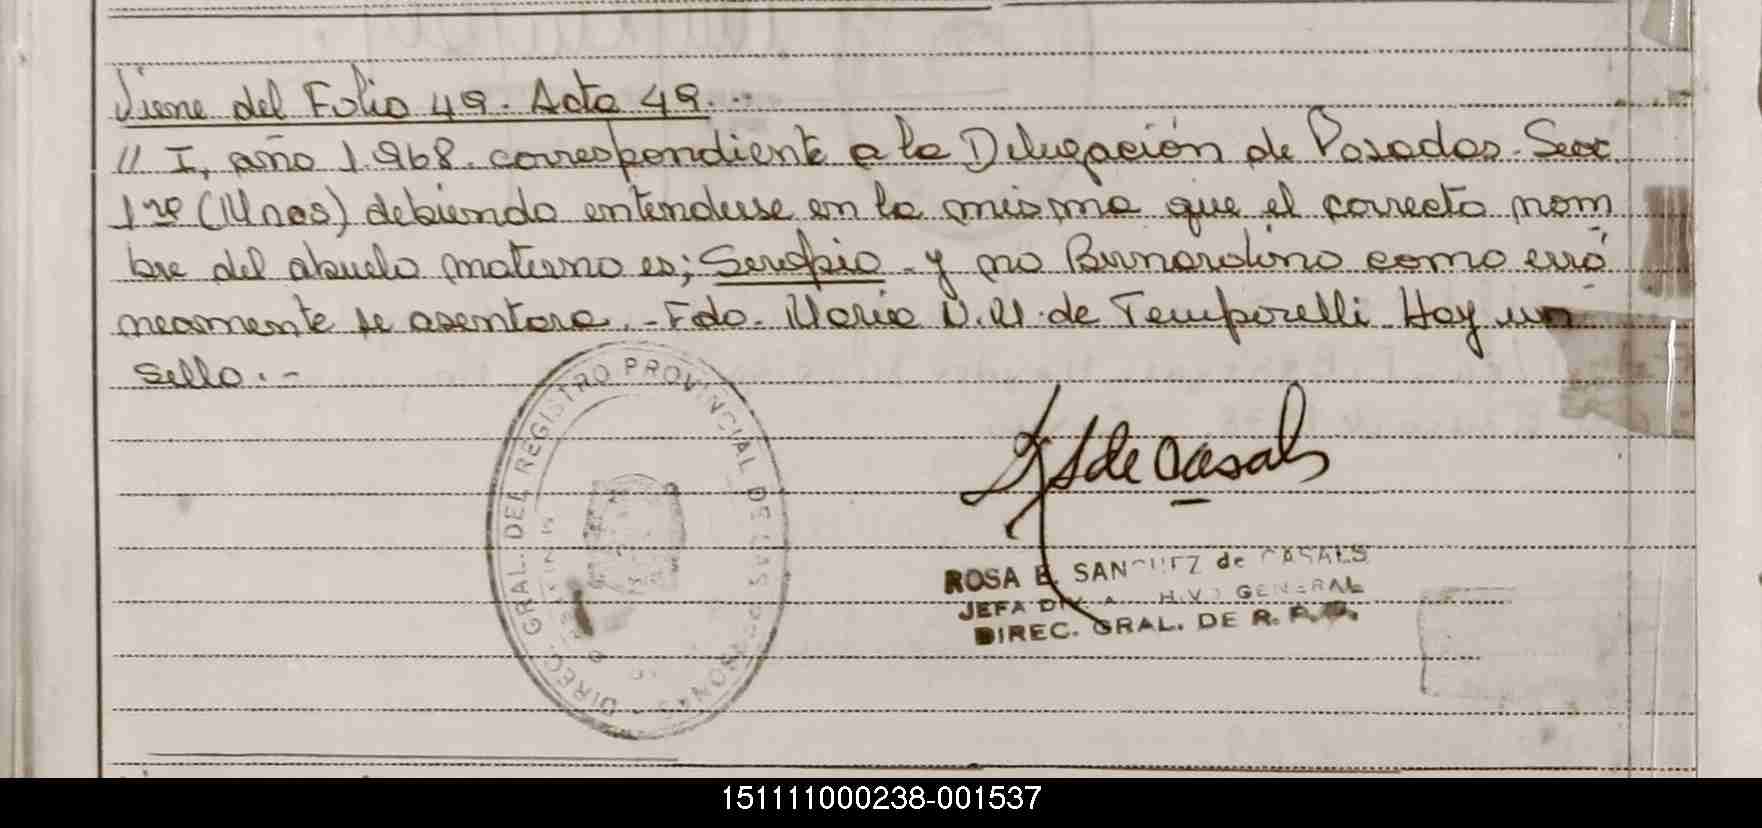 Viene del Folio 49. Acta 49.-
// I, año 1.968. correspondiente a la Delegación de Posadas. Secc.
1ra (Mnes) debiendo entenderse en la misma que el correcto nom
bre del abuelo materno es; Serapio - y no Bernardino como erró
neamente se asentara.- Fdo. María N.M. de Temporelli. Hay un
sello.-
DIREC. GRAL. DEL REGISTRO PROVINCIAL DE LAS PERSONAS
S de Casals
ROSA E. SANCHEZ de CASALS
JEFA DIV. GENERAL
DIREC. GRAL. DE R. P.
151111000238-001537